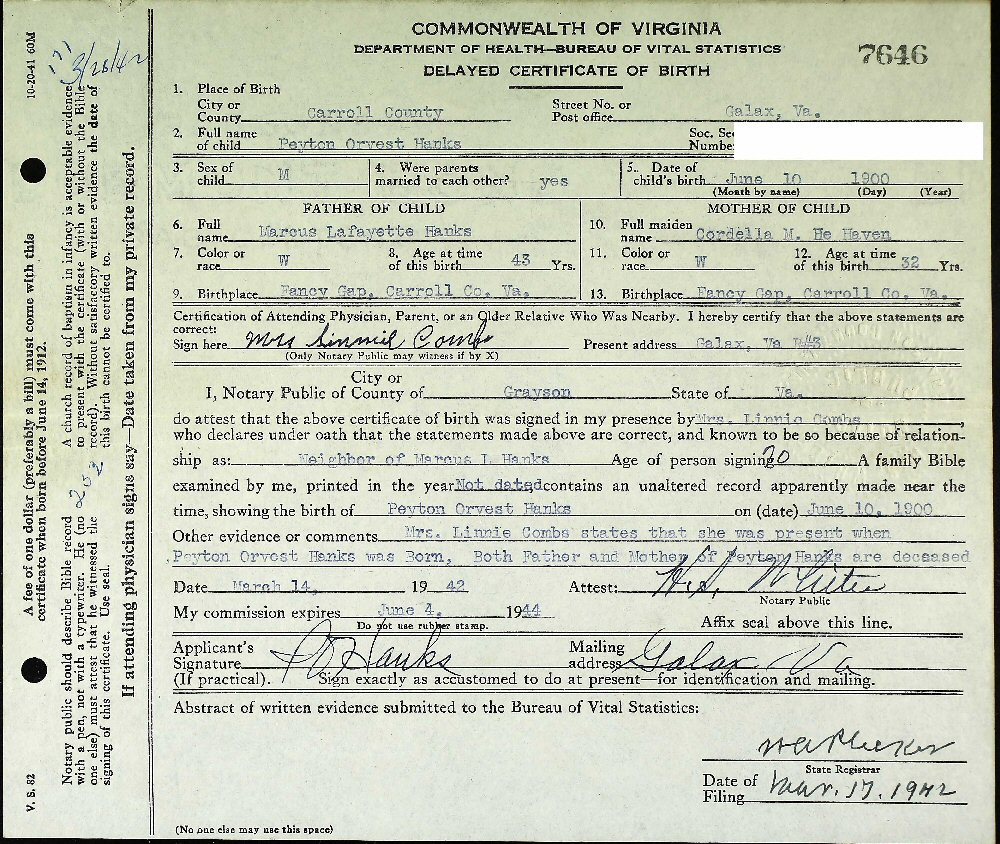 COMMONWEALTH OF VIRGINIA
DEPARTMENT OF HEALTH—BUREAU OF VITAL STATISTICS
7646
DELAYED CERTIFICATE OF BIRTH
1. Place of Birth
City or County Carroll County Street No. or Post office Galax, Va.
2. Full name of child Peyton Orvest Hanks Soc. Se Numbe
3. Sex of child M 4. Were parents married to each other? yes 5. Date of child's birth June 10 1900
(Month by name) (Day) (Year)
FATHER OF CHILD MOTHER OF CHILD
6. Full name Marcus Lafayette Hanks 10. Full maiden name Cordella M. He Haven
7. Color or race W 8. Age at time of this birth 43 Yrs. 11. Color or race W 12. Age at time of this birth 32 Yrs.
9. Birthplace Fancy Gap, Carroll Co. Va. 13. Birthplace Fancy Gap, Carroll Co. Va.
Certification of Attending Physician, Parent, or an Older Relative Who Was Nearby. I hereby certify that the above statements are correct:
Sign here Mrs Linnie Combs Present address Galax, Va R#3
(Only Notary Public may witness if by X)
City or
I, Notary Public of County of Grayson State of Va.
do attest that the above certificate of birth was signed in my presence by Mrs. Linnie Combs,
who declares under oath that the statements made above are correct, and known to be so because of relation-
ship as: Neighbor of Marcus L Hanks Age of person signing 70 A family Bible
examined by me, printed in the year Not dated contains an unaltered record apparently made near the
time, showing the birth of Peyton Orvest Hanks on (date) June 10, 1900
Other evidence or comments Mrs. Linnie Combs states that she was present when
Peyton Orvest Hanks was Born, Both Father and Mother of Peyton Hanks are deceased
Date March 14, 19 42 Attest:
Notary Public
My commission expires June 4, 1944 Affix seal above this line.
Do not use rubber stamp.
Applicant's Signature P O Hanks Mailing address Galax, Va
(If practical). Sign exactly as accustomed to do at present—for identification and mailing.
Abstract of written evidence submitted to the Bureau of Vital Statistics:
W A Plecker
State Registrar
Date of Filing Mar. 17. 1942
(No one else may use this space)
10-20-41 60M
3/28/42
A fee of one dollar (preferably a bill) must come with this
certificate when born before June 14, 1912.
V. S. 82
Notary public should describe Bible record A church record of baptism in infancy is acceptable evidence
with a pen, not with a typewriter. He (no to present with the certificate (with or without the Bible
one else) must attest that he witnessed the record). Without satisfactory written evidence the date of
signing of this certificate. Use seal. this birth cannot be certified to.
If attending physician signs say—Date taken from my private record.